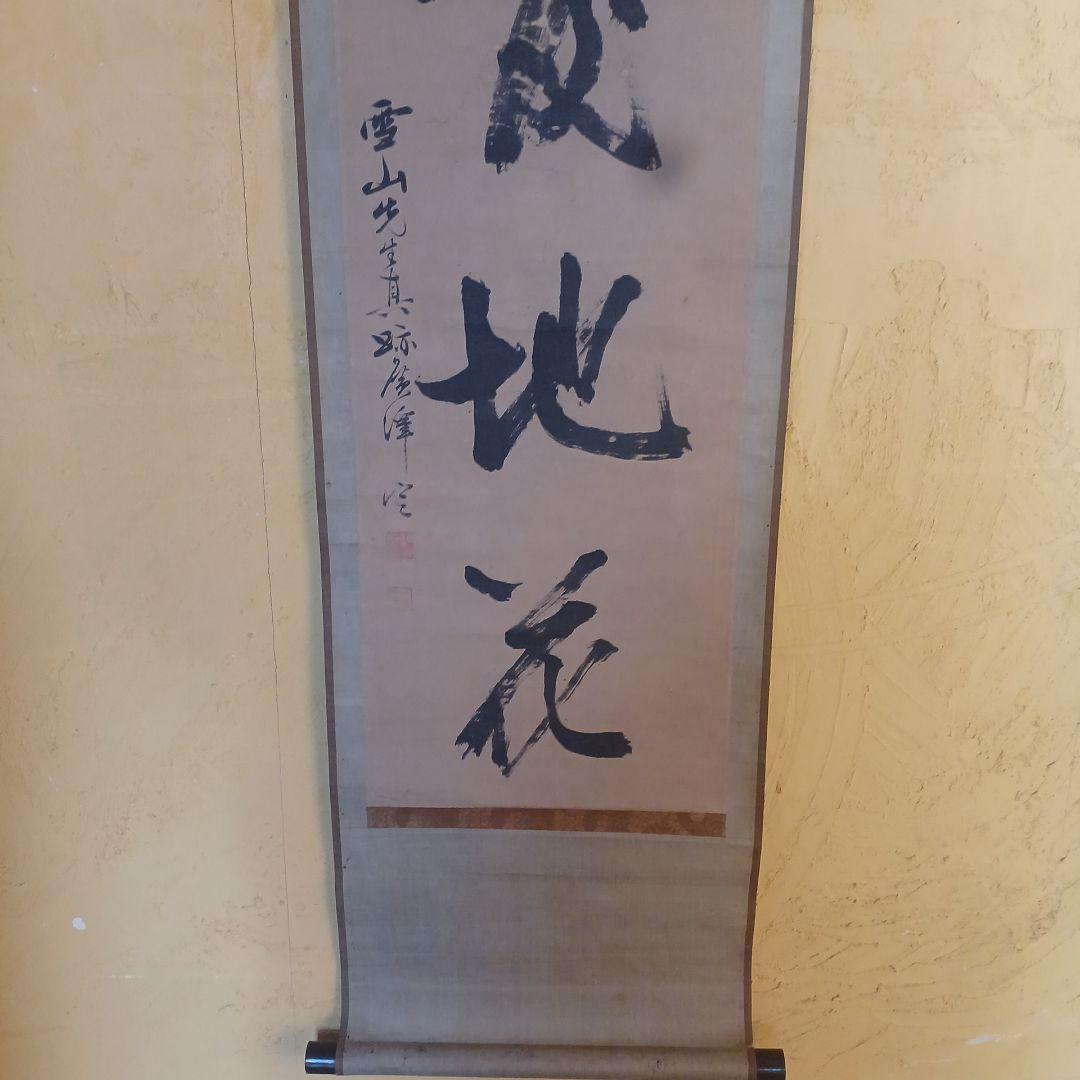 地花
雪山先生真跡廣澤